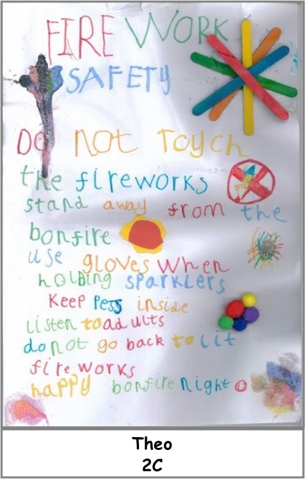 FIRE WORK
SAFETY
DO not Toych
the fireworks
stand away from the
bonfire
use gloves when
holding sparklers
Keep Pess inside
Listen to adults
do not go back to lit
fireworks
happy bonfire night
Theo
2C